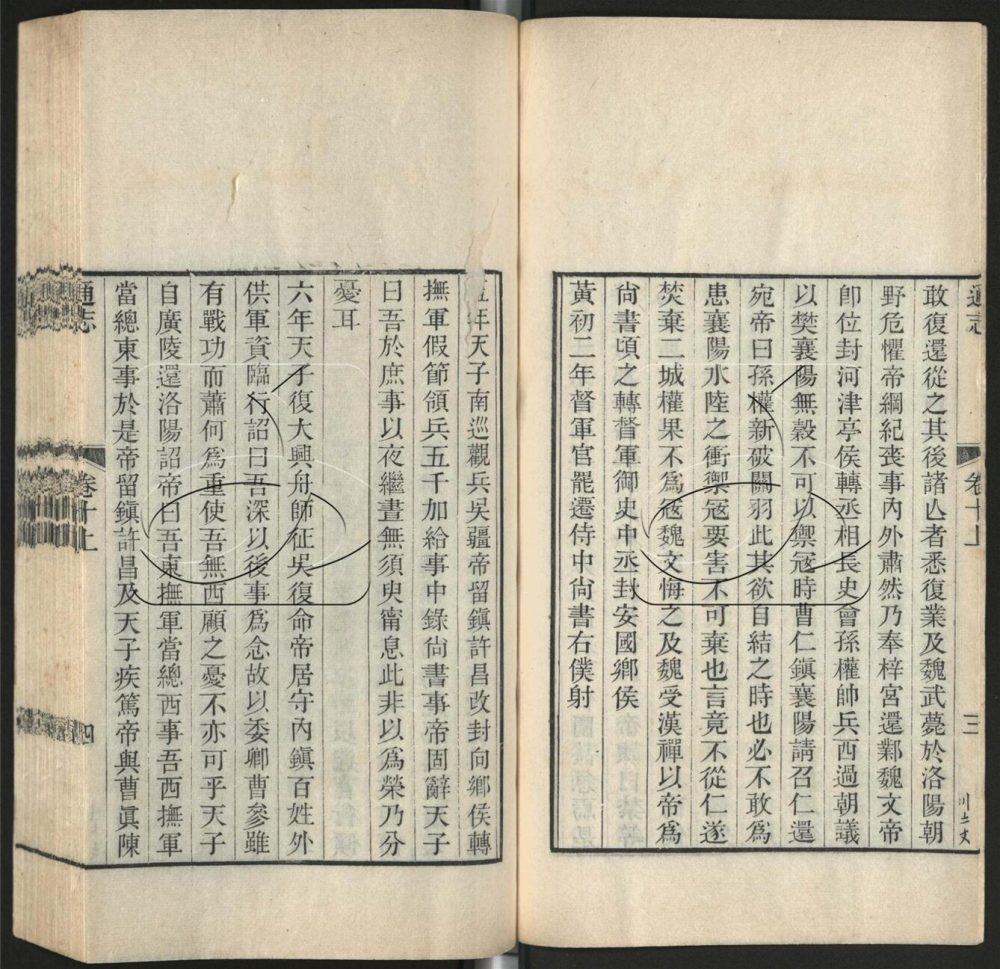 通志 卷十上 三
敢復還從之其後諸亾者悉復業及魏武薨於洛陽朝
野危懼帝綱紀丧事內外肅然乃奉梓宮還鄴魏文帝
卽位封河津亭侯轉丞相長史會孫權帥兵西過朝議
以樊襄陽無穀不可以禦冦時曹仁鎮襄陽請召仁還
宛帝曰孫權新破關羽此其欲自結之時也必不敢爲
患襄陽水陸之衝禦冦要害不可棄也言竟不從仁遂
焚棄二城權果不爲冦魏文悔之及魏受漢禪以帝爲
尙書頃之轉督軍御史中丞封安國鄉侯
黃初二年督軍官罷遷侍中尙書右僕射
五年天子南巡觀兵吳疆帝留鎮許昌改封向鄉侯轉
撫軍假節領兵五千加給事中錄尙書事帝固辭天子
曰吾於庶事以夜繼晝無須臾甯息此非以爲榮乃分
憂耳
六年天子復大興舟師征吳復命帝居守內鎮百姓外
供軍資臨行詔曰吾深以後事爲念故以委卿曹參雖
有戰功而蕭何爲重使吾無西顧之憂不亦可乎天子
自廣陵還洛陽詔帝曰吾東撫軍當總西事吾西撫軍
當總東事於是帝留鎮許昌及天子疾篤帝與曹眞陳
通志 卷十上 四